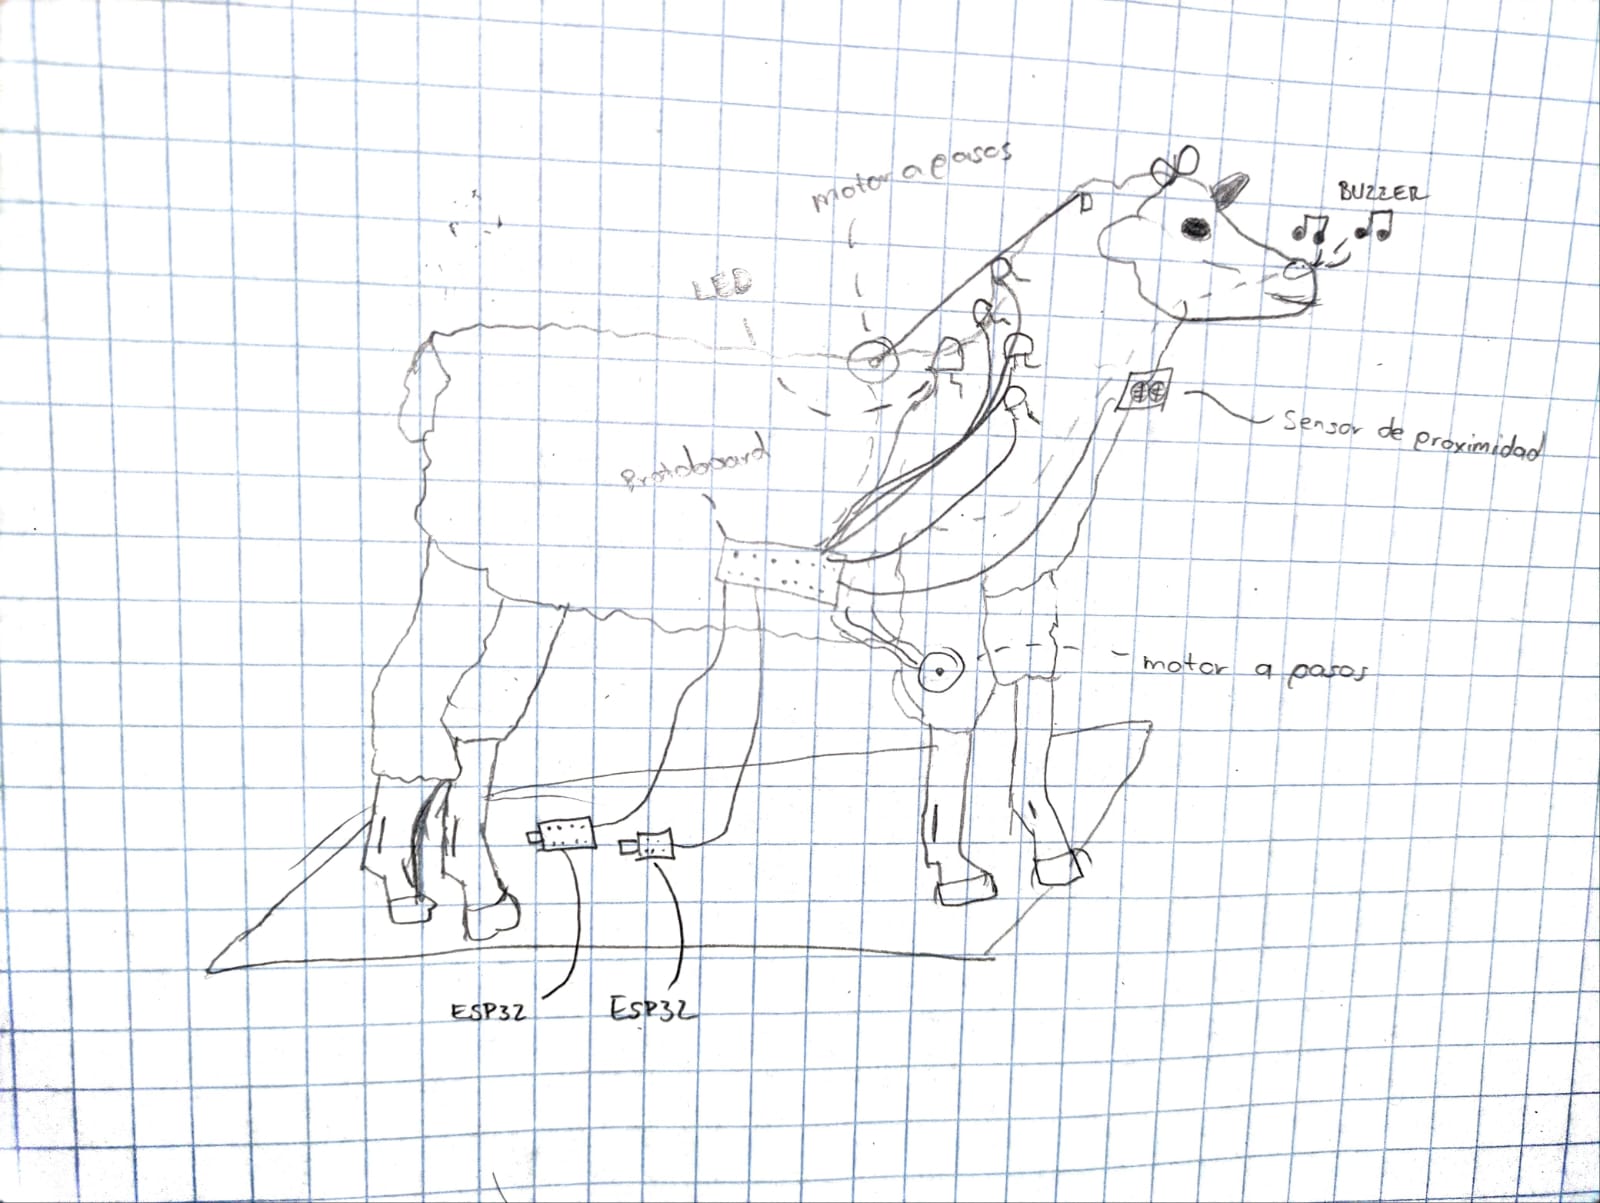 motor a pasos
BUZZER
LED
Sensor de proximidad
Protoboard
motor a pasos
ESP32
ESP32